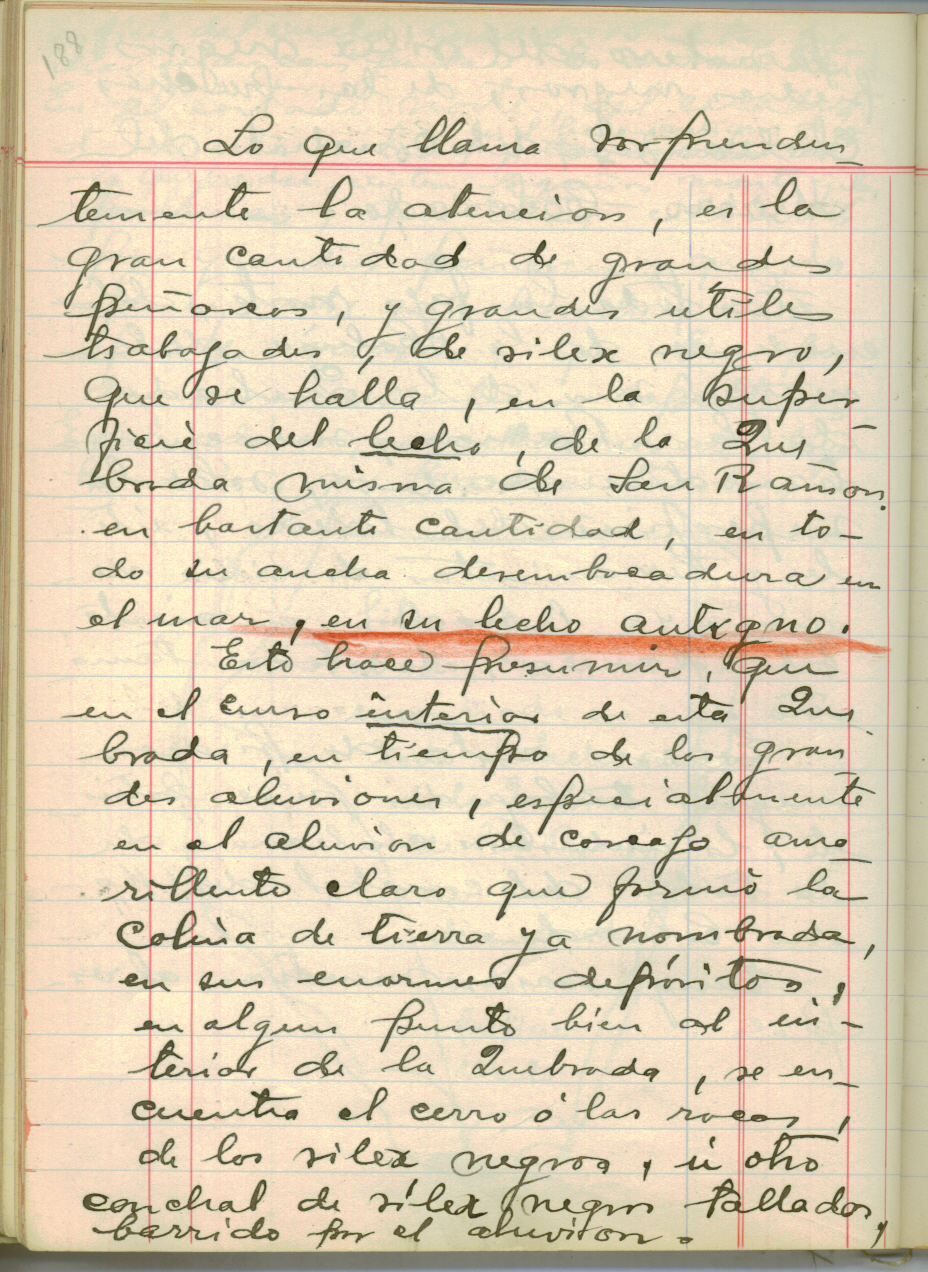 188
Lo que llama sorprenden_
temente la atencion, es la
gran cantidad de grandes
peñascos, y grandes utiles
trabajados, de silex negro,
que se halla, en la super_
ficie del lecho, de la Que_
brada misma de San Ramon.
en bastante cantidad, en to_
do su ancha desembocadura en
el mar, en su lecho antiguo.
Esto hace presumir, que
en el curso interior de esta Que_
brada, en tiempo de los gran_
des aluviones, especialmente
en el aluvion de cascajo ama_
rillento claro que formó la
Colina de tierra ya nombrada,
en sus enormes depósitos,
en algun punto bien al in_
terior de la Quebrada, se en_
cuentra el cerro ó las rocas,
de los silex negros, ú otro
conchal de silex negros tallados,
barrido por el aluvion.